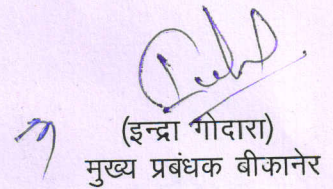 (इन्द्रा गोदारा)
मुख्य प्रबंधक बीकानेर